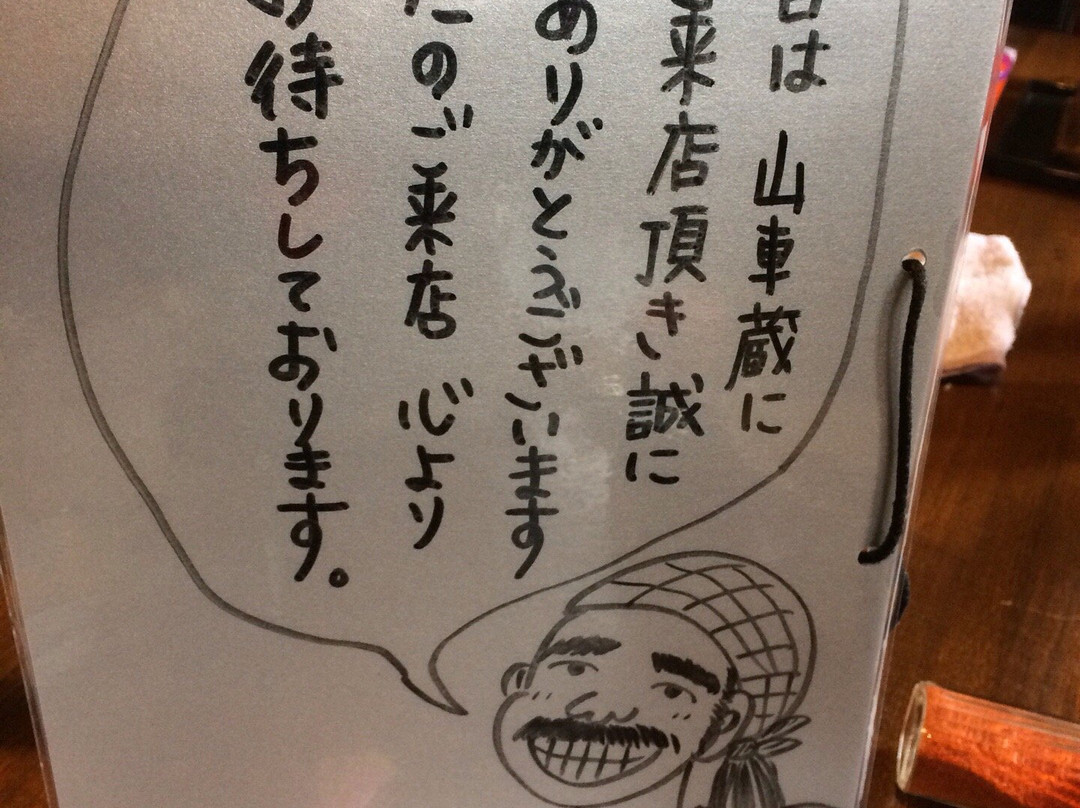 日は 山車蔵に
来店頂き誠に
ありがとうございます
たのご来店 心より
お待ちしております。